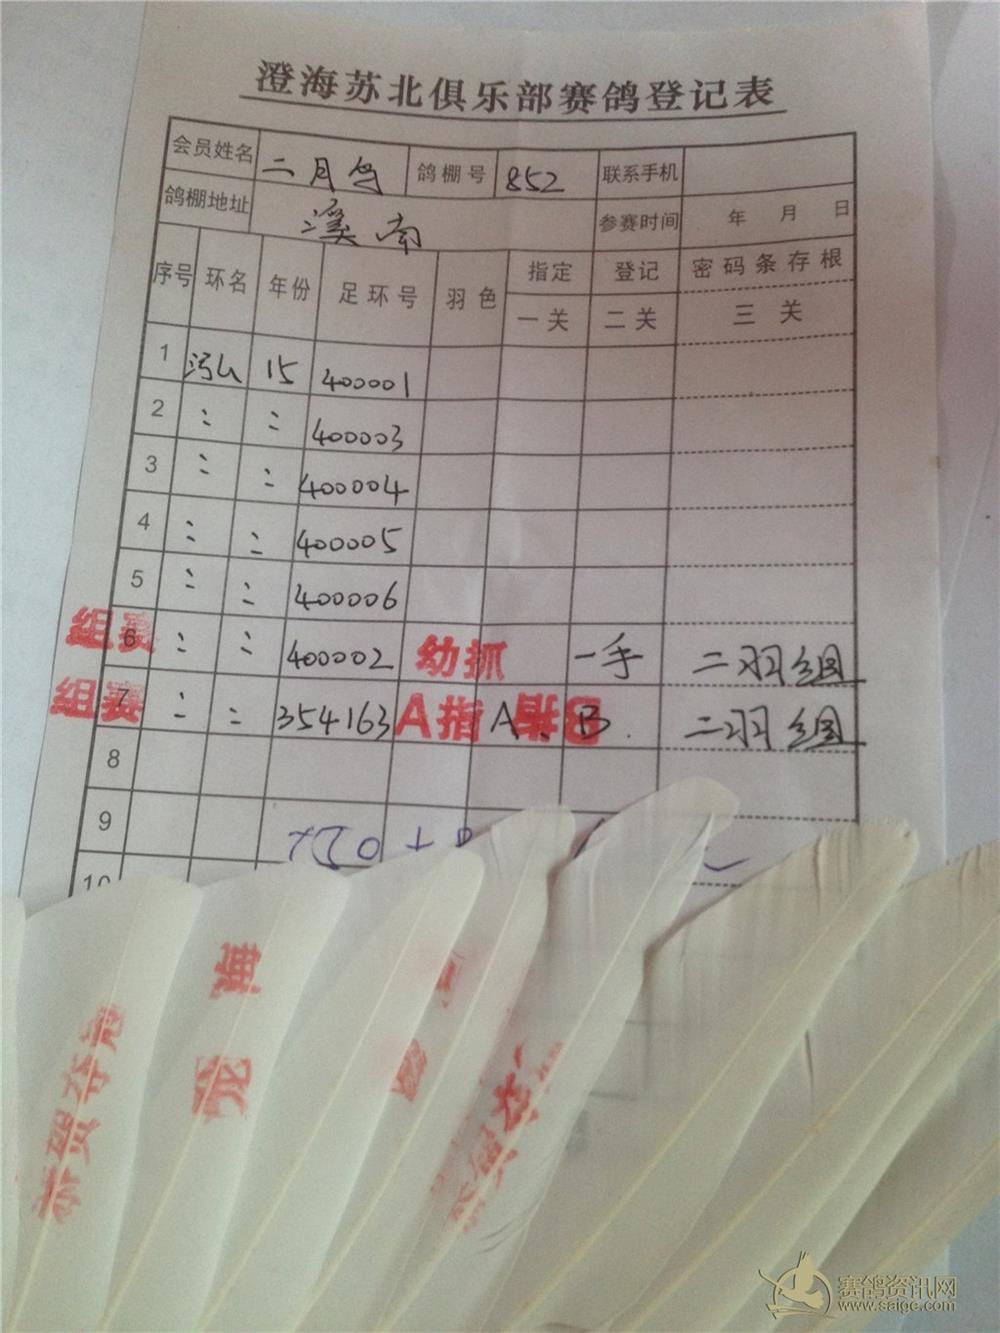 澄海苏北俱乐部赛鸽登记表
会员姓名 二月鸟 鸽棚号 852 联系手机
鸽棚地址 溪南 参赛时间 年 月 日
序号 环名 年份 足环号 羽色 指定 登记 密码条存根
一关 二关 三关
1 15 400001
2 〃 〃 400003
3 〃 〃 400004
4 〃 〃 400005
5 〃 〃 400006
组赛 6 〃 〃 400002 幼抓 一手 二羽组
组赛 7 〃 〃 354163 A指 A B 二羽组
8
9
10
海
赛鸽资讯网
www.saige.com